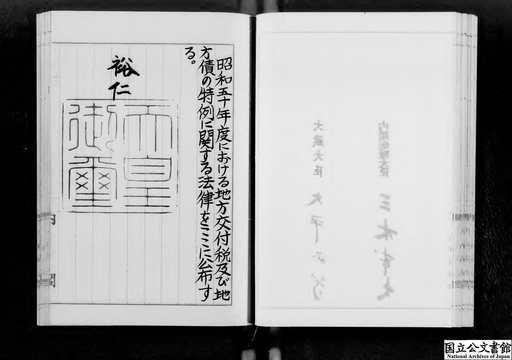 昭和五十年度における地方交付税及び地
方債の特例に関する法律をここに公布す
る。
裕仁
天皇
御璽
内閣総理大臣
三木武夫
大蔵大臣
大平正芳
国立公文書館
National Archives of Japan